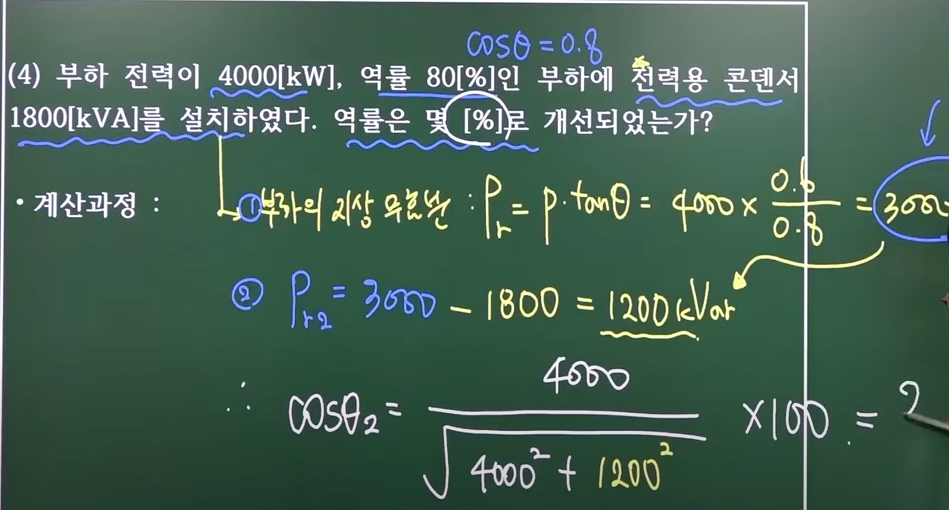 cosθ = 0.8
(4) 부하 전력이 4000[kW], 역률 80[%]인 부하에 전력용 콘덴서
1800[kVA]를 설치하였다. 역률은 몇 [%]로 개선되었는가?
• 계산과정 : ① 부하의 지상 무효분 : Pr = P·tanθ = 4000 × 0.6/0.8 = 3000
② Pr2 = 3000 - 1800 = 1200kVar
∴ cosθ2 = 4000/√(4000² + 1200²) ×100 =